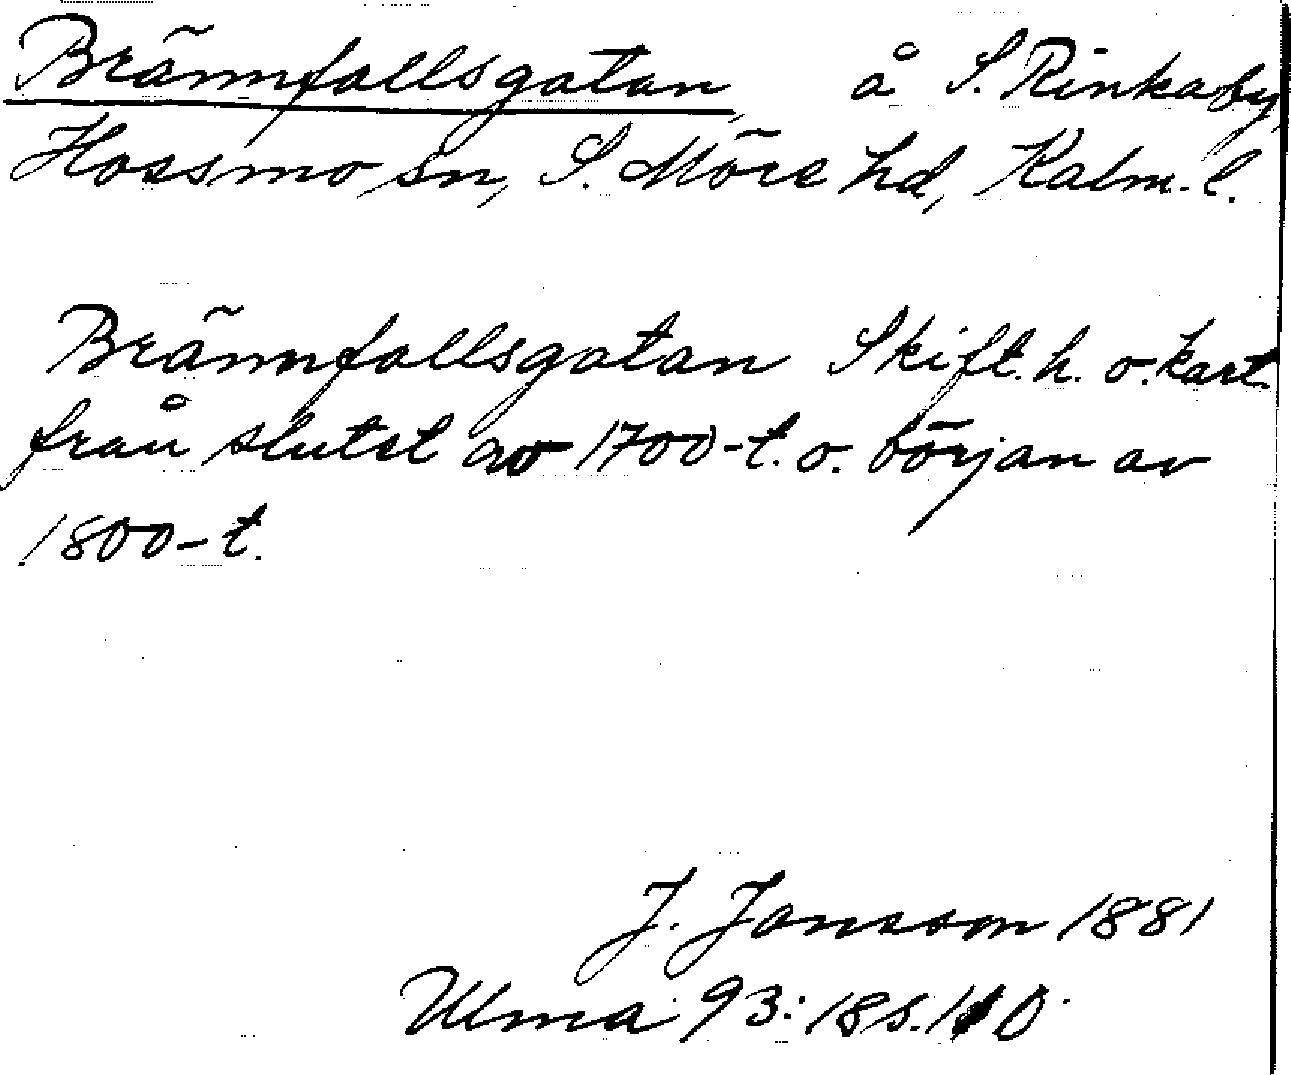 Brännfallsgatan, å S. Rinkaby,
Hossmo sn, S. Möre hd, Kalm. l.
Brännfallsgatan Skift. h. o. kart.
från slutet av 1700-t. o. början av
1800-t.
J. Jonsson 1881
Ulma 93:18 s. 110.